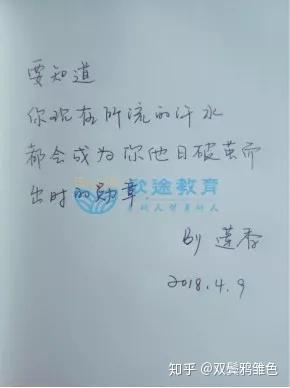 要知道
你现在所流的汗水
都会成为你他日破茧而
出时的勋章.
欣途教育
By 莲香
2018.4.9
知乎 @双鬓鸦雏色